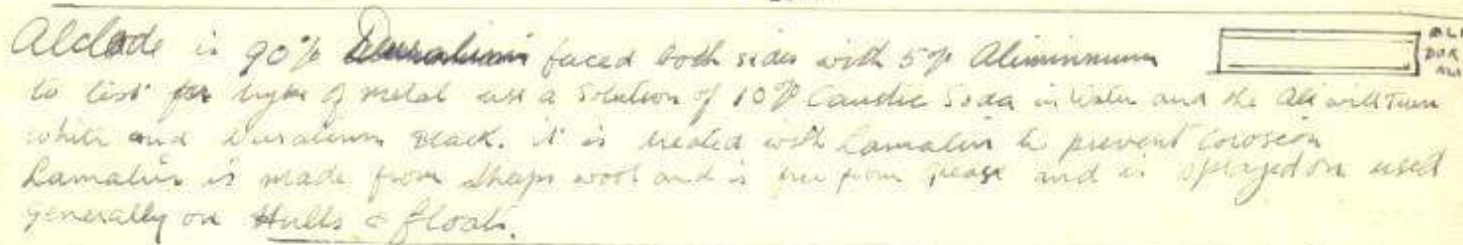 Alclade is 90% Duralumin faced both sides with 5% Aliminnium
ALI
DUR
ALI
to test for type of metal use a Solution of 10% Caustic Soda in Water and the Ali will Turn
white and Duralumin Black. it is treated with Lanialin to prevent Corosion
Lanialin is made from Sheeps wool and is free from grease and is sprayed on used
generally on Hulls & floats.